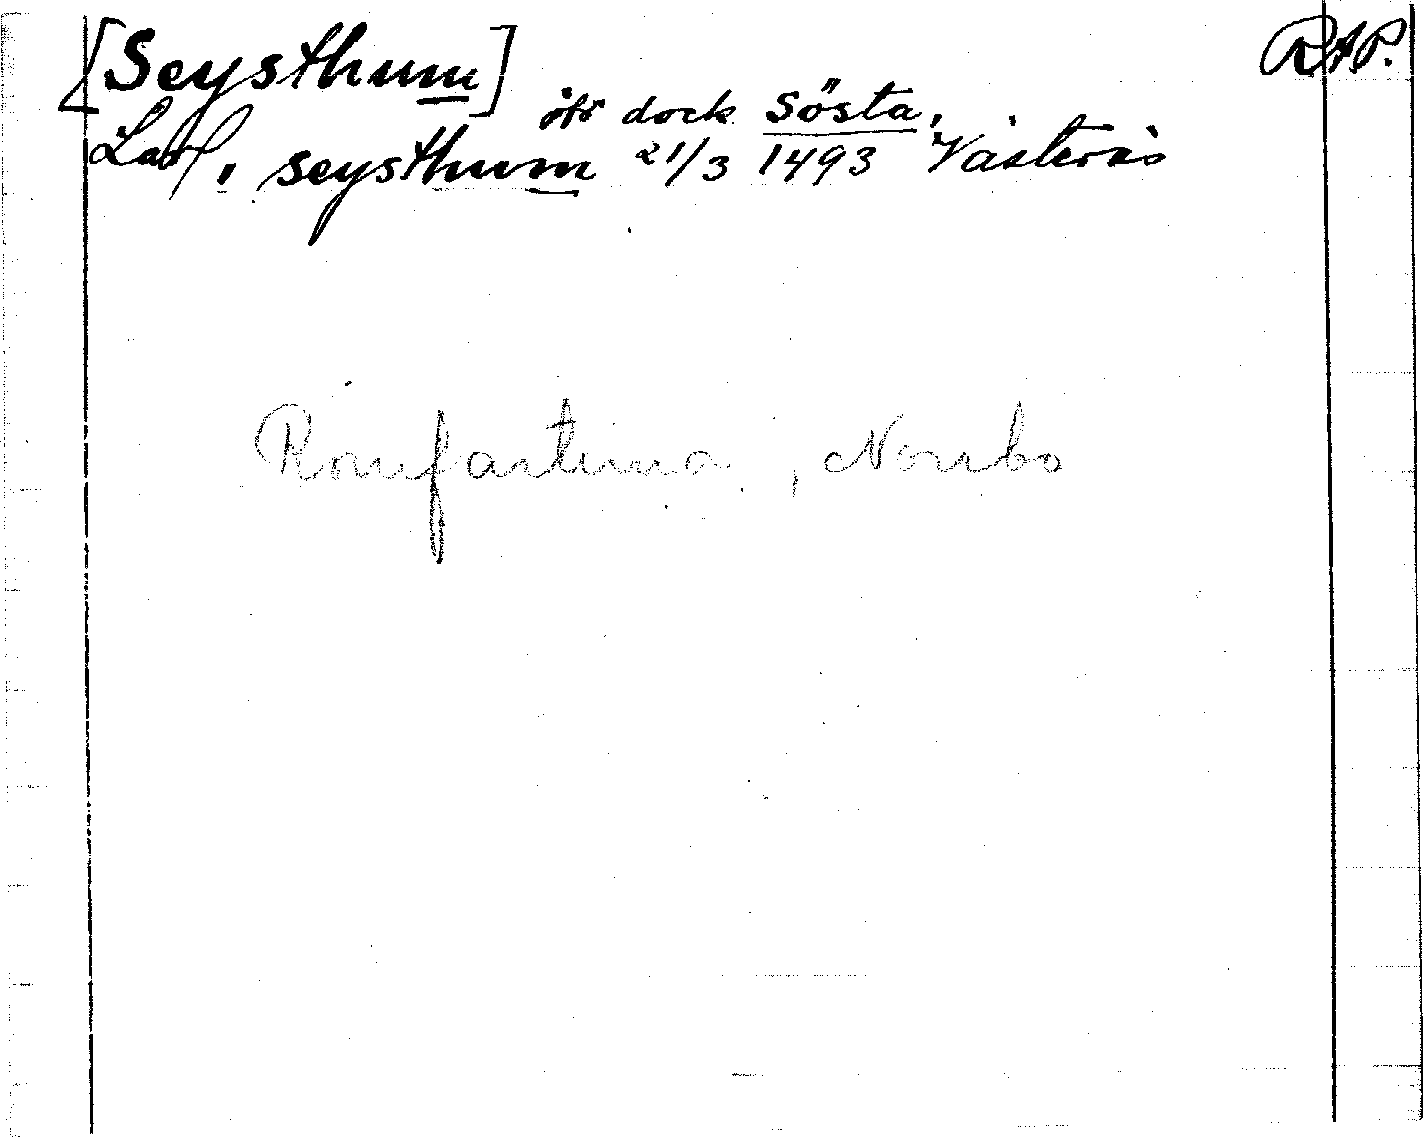 [Seysthum] RAP.
ötr dock Sösta,
Lat, seysthum 21/3 1493 Västerås
Romfartuna, Norrbo